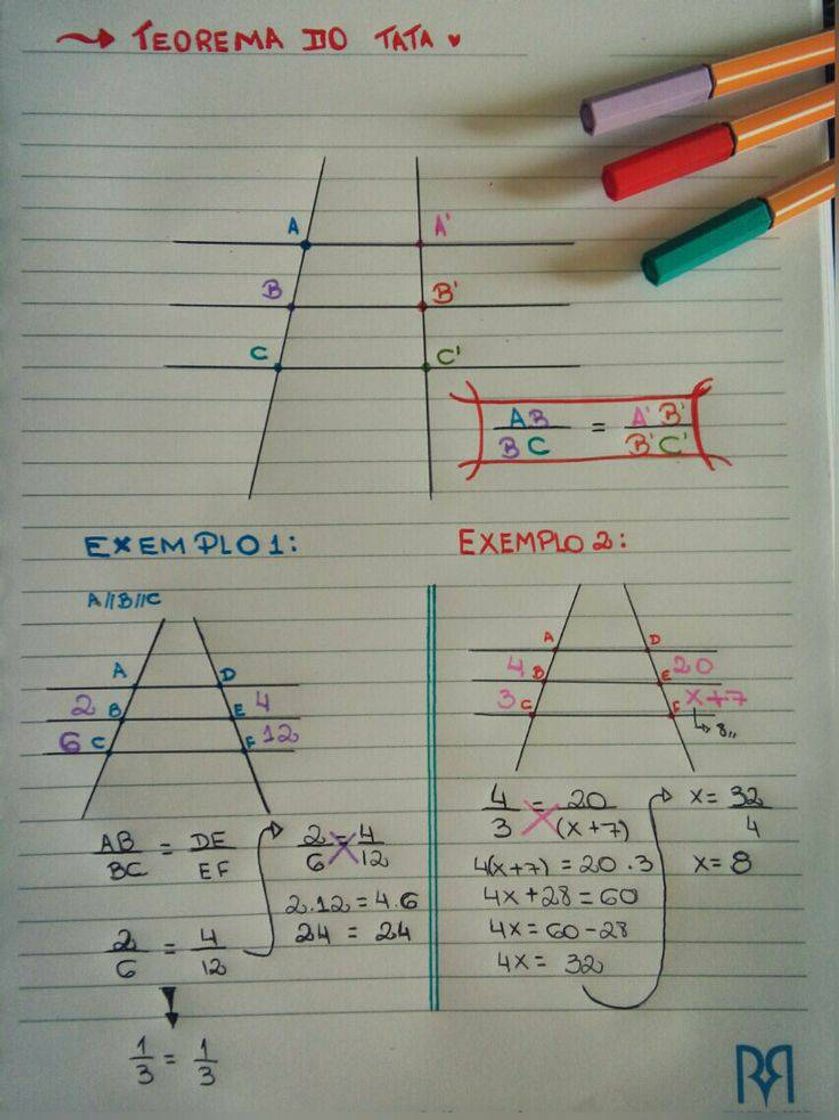 → TEOREMA DO TATA ♥
A A'
B B'
C C'
AB/BC = A'B'/B'C'
EXEMPLO 1:
A//B//C
A D
2 B E 4
6 C F 12
AB/BC = DE/EF
2/6 = 4/12
1/3 = 1/3
2/6 = 4/12
2.12 = 4.6
24 = 24
EXEMPLO 2:
A D
4 B E 20
3 C F x+7
↳ 8,,
4/3 = 20/(x+7)
4(x+7) = 20.3
4x+28 = 60
4x = 60-28
4x = 32
x = 32/4
x = 8